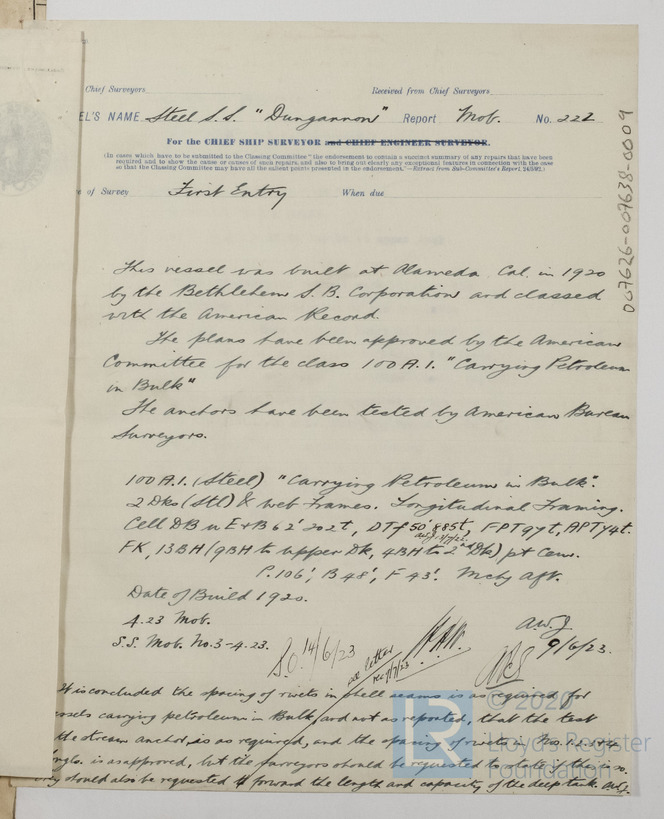 Chief Surveyors
Received from Chief Surveyors
EL'S NAME Steel S.S. "Dungannon" Report Mob. No. 222
For the CHIEF SHIP SURVEYOR and CHIEF ENGINEER SURVEYOR.
(In cases which have to be submitted to the Classing Committee "the endorsement to contain a succinct summary of any repairs that have been
required and to show the cause or causes of such repairs, and also to bring out clearly any exceptional features in connection with the case
so that the Classing Committee may have all the salient points presented in the endorsement."—Extract from Sub-Committee's Report,
e of Survey First Entry When due
007626-007638-0009
This vessel was built at Alameda Cal. in 1920
by the Bethlehem S.B. Corporation and classed
with the American Record.
The plans have been approved by the American
Committee for the class 100A.1. "Carrying Petroleum
in Bulk"
The anchors have been tested by American Bureau
Surveyors.
100A.1. (Steel) "Carrying Petroleum in Bulk".
2 Dks (Stl) & web frames. Longitudinal Framing.
Cell DB u E+B 62' 202t, DTf 50' 885t, FPT 97t, APT 74t.
FK, 13BH (9BH to upper Dk, 4BH to 2nd Dk) pt Cem.
P.106', B 48', F 43'. Mchy Aft.
Date of Build 1920.
4.23 Mob.
S.S. Mob. No.3-4.23.
S.O. 14/6/23
see letter
9/6/23.
It is concluded the spacing of rivets in shell seams is as required for
vessels carrying petroleum in Bulk, and not as reported, that the test
the stream anchor, is as required, and the spacing of rivets in Nos.
is as approved, but the Surveyors should be requested to state if this is so.
should also be requested to forward the length and capacity of the deep tank.
© 2020
Lloyd's Register
Foundation